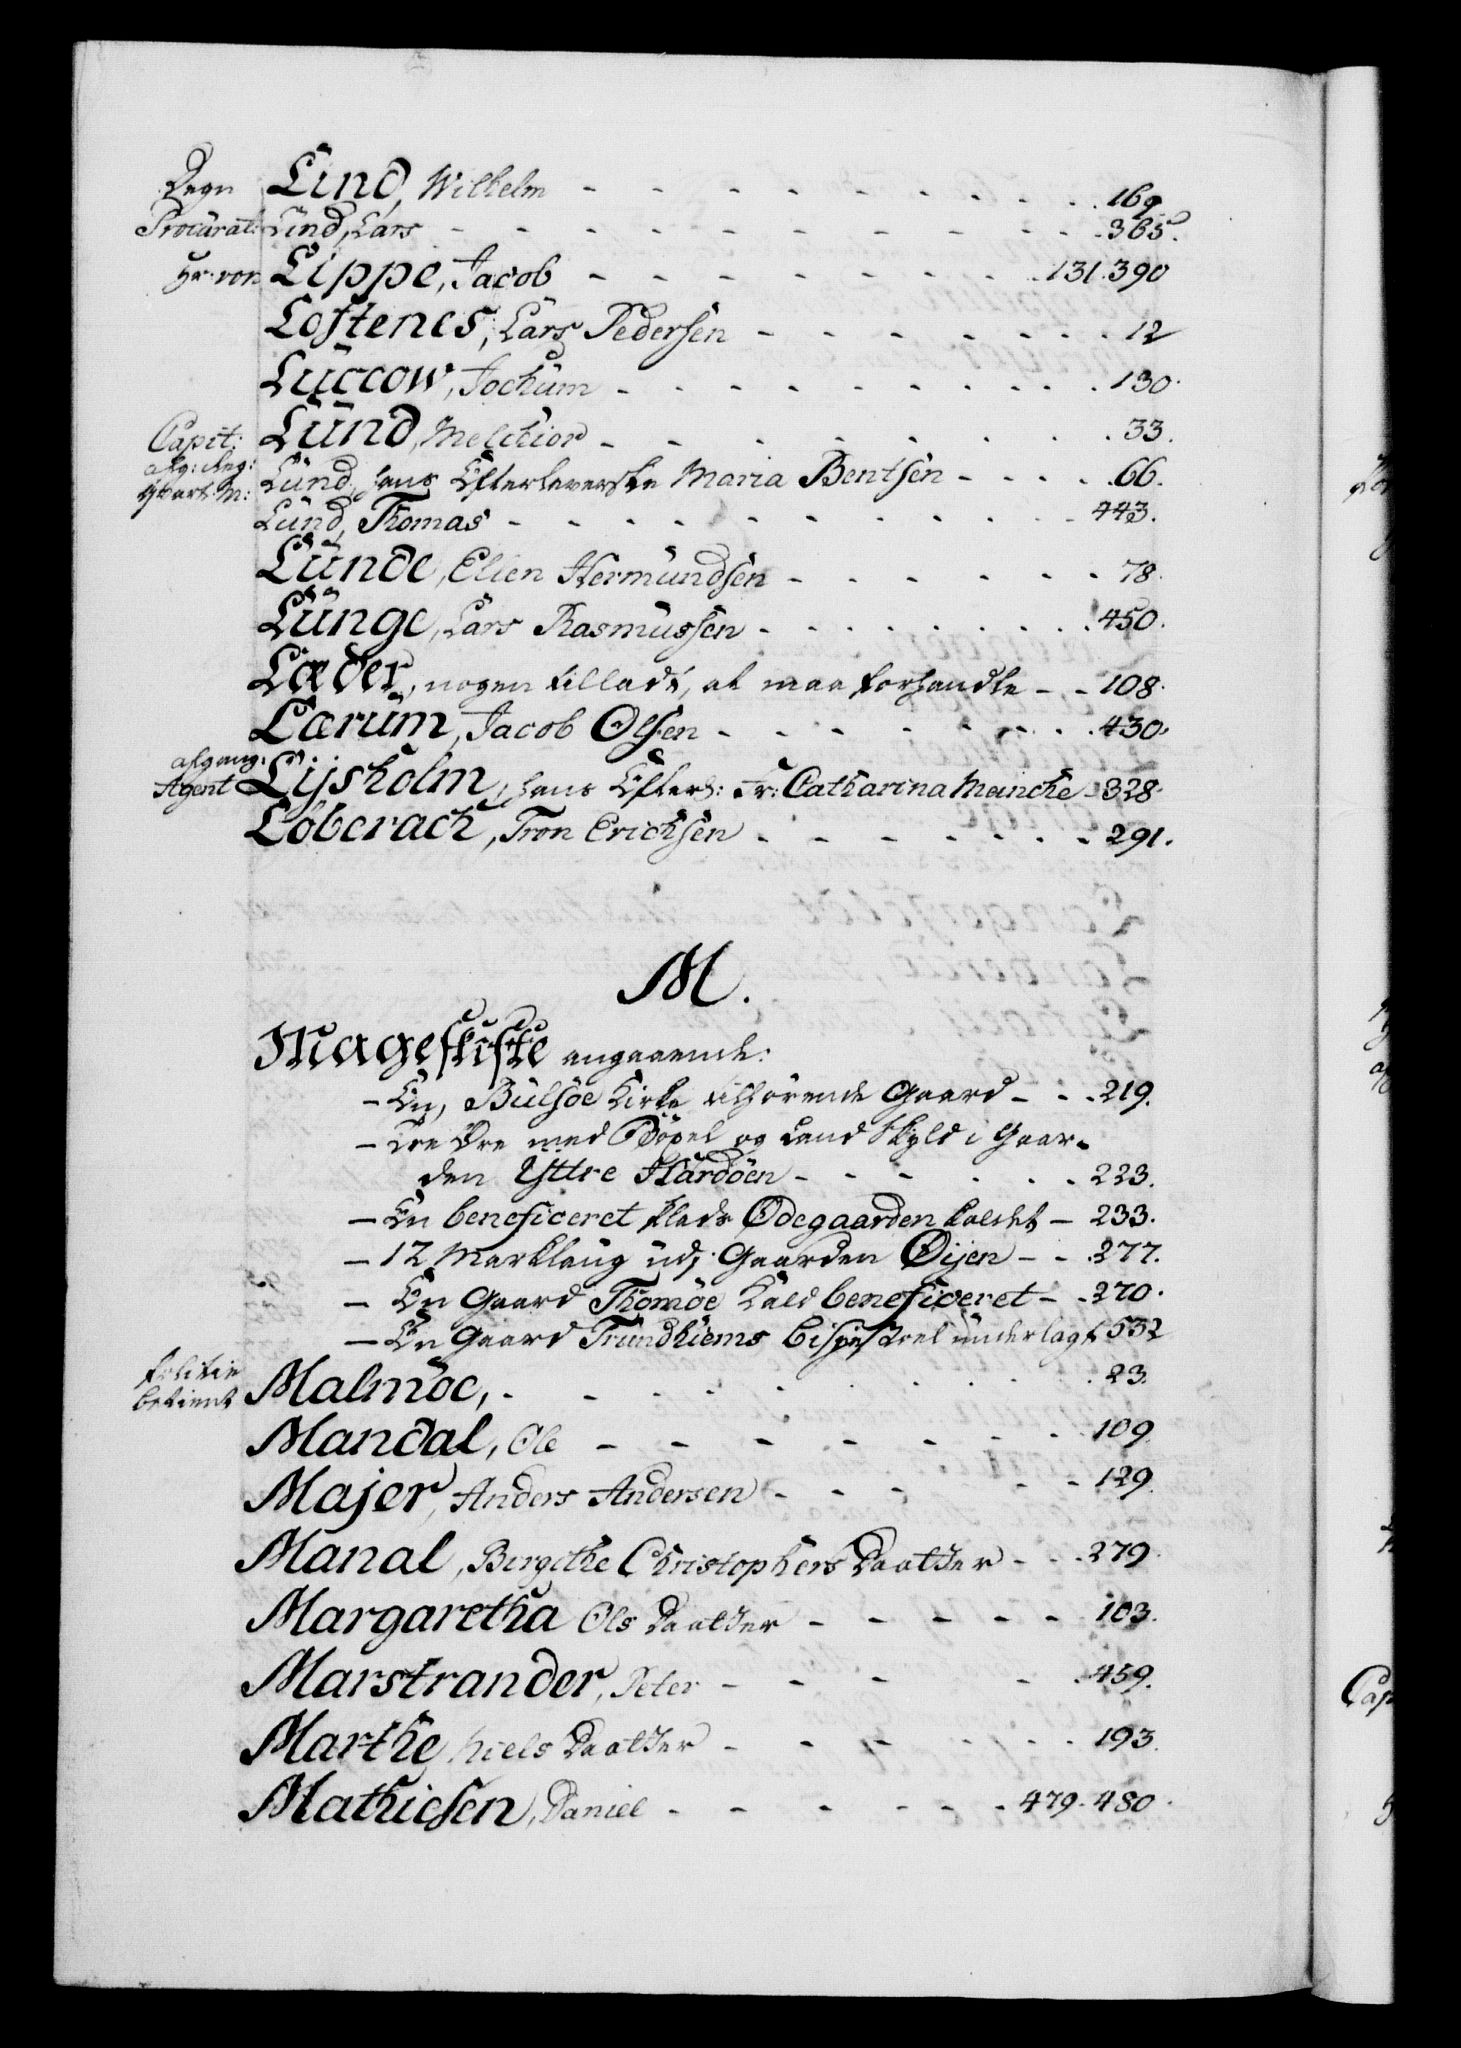 Degn Lind, Wilhelm - - - - - - - - - 169
Procurat: Lind, Lars - - - - - - - - - 365.
Hr. von Lippe, Jacob - - - - - - - - 131.390
Loftenes, Lars Pedersen - - - - - - - 12
Lüccow, Jochüm - - - - - - - - - 130.
Capit: Lünd, Melchior - - - - - - - - 33.
afg: Reg: Lünd, hans Efterleverske Maria Bentsen - - - - 66.
Qvart: M:
Lünd, Thomas - - - - - - - - - - 443.
Lünde, Elien Hermündsen - - - - - - - 78.
Lünge, Lars Rasmüssen - - - - - - - - 450.
Læder, nogen tilladt, at maa forhandle - - 108.
Lærüm, Jacob Olsen - - - - - - - - 430.
afgang:
Agent Lijsholm, hans Efterl: Fr: Catharina Meincke - 328.
Löberach, Tron Erichsen - - - - - - - 291.
M.
Mageskifte angaaende:
- En, Bülsöe Kirke tilhörende Gaard - - - 219.
- Tre Öre med Böxel og Land Skyld i Gaar-
den Yttre Hardöen - - - - - - 223.
- En beneficeret Plads Ödegaarden kaldet - 233.
- 12 Marklaug udj Gaarden Öijen - - - 277.
- En Gaard Thomöe kald beneficeret - - 270.
- En Gaard Tründhiems Bispestoel ünderlagt 532
Politie
betient Malmöe, - - - - - - - - - 23.
Mandal, Ole - - - - - - - - 109.
Majer, Anders Andersen - - - - - 129.
Manal, Birgithe Christophers Daatter - - - 279.
Margaretha Ols Daatter - - - - - 103.
Marstrander, Peter - - - - - 459.
Marthe Niels Daatter - - - - - - 193.
Mathiesen, Daniel - - - - - - 479. 480.